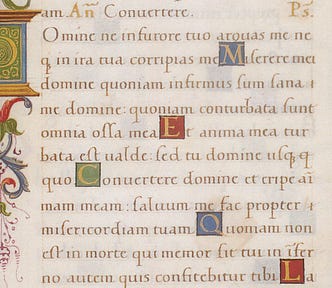 am. Añ Convertere. Ps.
Omine ne in furore tuo arguas me ne
q in ira tua corripias me Miserere mei
domine quoniam infirmus sum sana
me domine: quoniam conturbata sunt
omnia ossa mea Et anima mea tur
bata est valde: sed tu domine usq q
quo Convertere domine et eripe aī
mam meam: saluum me fac propter
misericordiam tuam Quoniam non
est in morte qui memor sit tui in īfer
no autem quis confitebitur tibi La